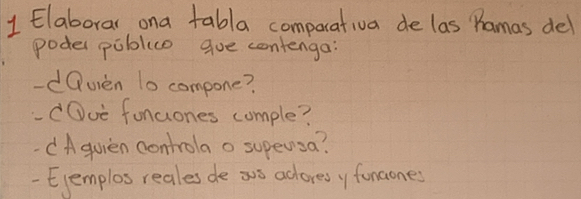 1 Elaborar una tabla comparativa de las Ramas del
poder público que contenga:
- ¿Quién lo compone?
- ¿Qué funciones cumple?
- ¿A quién controla o supevisa?
- Ejemplos reales de sus actores y funciones